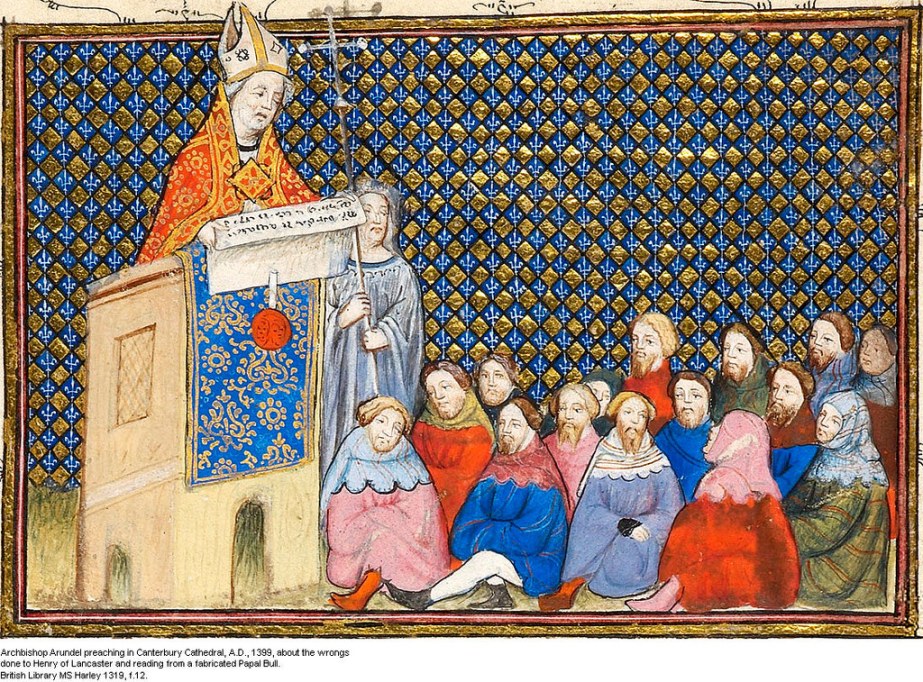 Archbishop Arundel preaching in Canterbury Cathedral, A.D., 1399, about the wrongs
done to Henry of Lancaster and reading from a fabricated Papal Bull.
British Library MS Harley 1319, f.12.